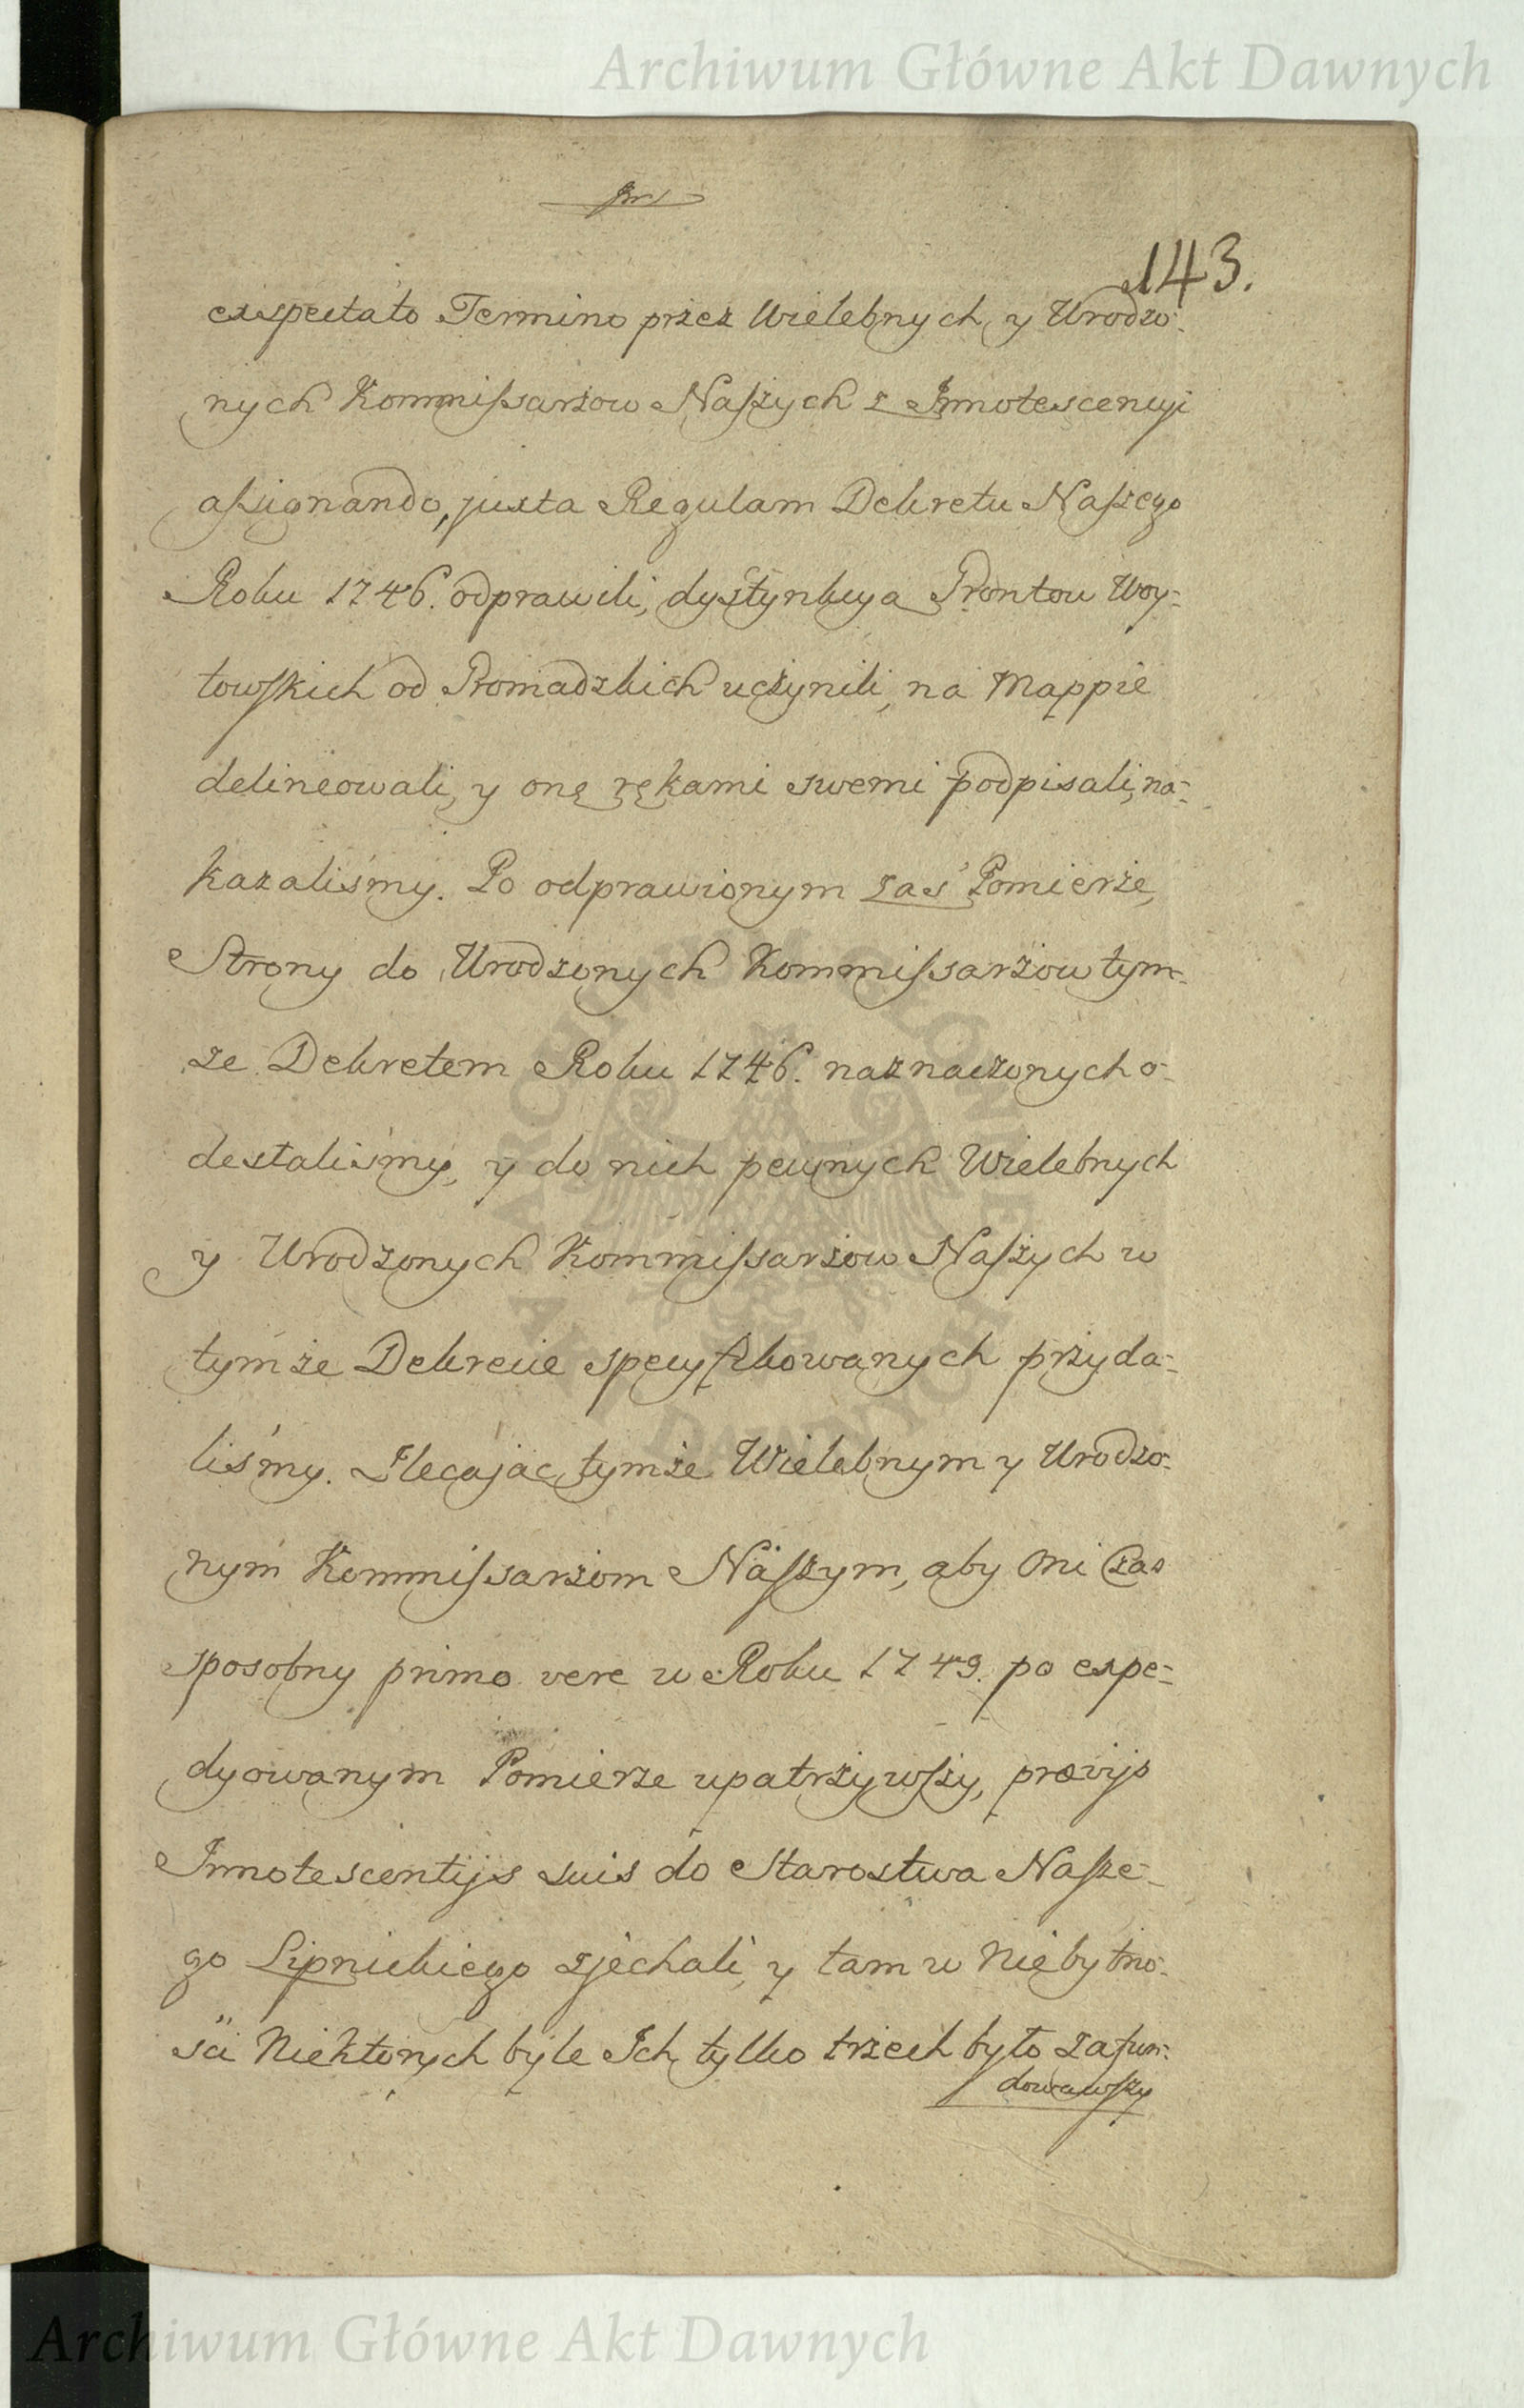 Archiwum Główne Akt Dawnych
143.
exspectato Termino przez Wielebnych y Urodzo:
nych Kommissarzow Naszych z Innotescencyi
assignando, juxta Regulam Dekretu Naszego
Roku 1746. odprawili, dystynkcyą Gruntow Woy:
towskich od Gromadzkich uczynili, na Mappie
delineowali, y onę rękami swemi podpisali, na:
kazaliśmy. Po odprawionym zaś Pomierze,
Strony do Urodzonych Kommissarzow tym:
ze Dekretem Roku 1746. naznaczonych o:
desłaliśmy, y do nich pewnych Wielebnych
y Urodzonych Kommissarzow Naszych w
tymże Dekrecie specyfikowanych przyda:
liśmy. Zlecając tymże Wielebnym y Urodzo:
nym Kommissarzom Naszym, aby Oni Czas
sposobny primo vere w Roku 1749. po expe:
dyowanym Pomierze upatrzywszy, prævijs
Innotescentijs suis do Starostwa Nasze:
go Lipnickiego zjechali, y tam w Niebytno:
ści Niektorych byle Ich tylko trzech było zafun:
dowawszy
ARCHIWUM GŁÓWNE
AKT DAWNYCH
Archiwum Główne Akt Dawnych